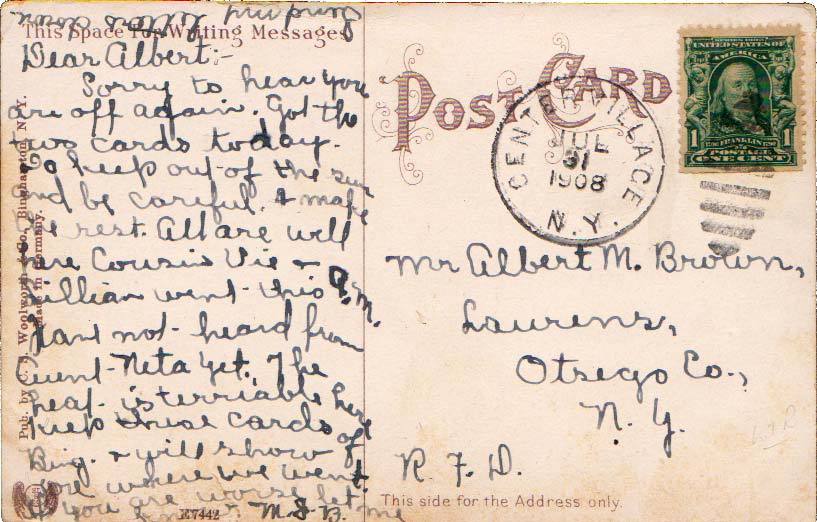 This Space For Writing Messages
Dear Albert:-
Sorry to hear you
are off again. Got the
two cards today.
Do keep out of the sun
and be careful. & make
rest. All are well
here Cousin Vie &
Lillian went this A.M.
Have not heard from
Aunt Neta yet. The
heat is terriable here
keep these cards of
Bing. & will show
you where we went.
If you are worse let me
know. M.J.B.
Pub. by C. S. Woolworth & Co., Binghamton, N. Y.
Made in Germany.
E7442
POST CARD
CENTER VILLAGE
JUL
31
1908
N.Y.
SERIES 1902
UNITED STATES OF
AMERICA
1 FRANKLIN 1
POSTAGE
ONE CENT
Mr Albert M. Brown,
Laurens,
Otsego Co.,
N. Y.
R. F. D.
This side for the Address only.